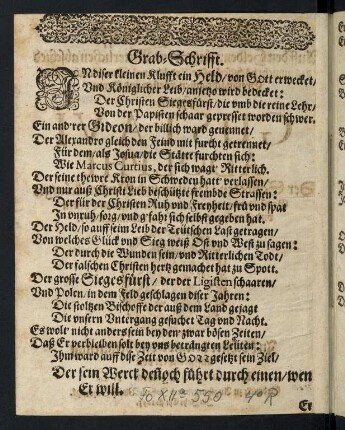 Grab-Schrifft.
IN diser kleinen Klufft ein Held / von Gott erwecket /
Vnd Königlicher Leib / anjetzo wird bedecket:
Der Christen Siegesfürst / die vmb die reine Lehr /
Von der Papisten schaar gepresset worden schwer.
Ein andrer Gideon / der billich ward genennet /
Der Alexandro gleich den Feind mit furcht getrennet /
Für dem / als Josua / die Stätte furchten sich:
Wie Marcus Curtius, der sich wagt Ritterlich.
Der seine thewre Kron in Schweden hatt verlassen /
Vnd nur auß Christi Lieb beschützte frembde Strassen:
Der für der Christen Ruh vnd Freyheit / früh vnd spat
In vnruh / sorg / vnd gfahr sich selbst gegeben hat.
Der Held / so auff seim Leib der Teütschen Last getragen /
Von welches Glück vnd Sieg weiß Ost vnd West zu sagen:
Der durch die Wunden sein / vnd Ritterlichen Todt /
Der falschen Christen hertz gemachet hat zu Spott.
Der grosse Siegesfürst / der der Ligisten schaaren /
Vnd Polen / in dem Feld geschlagen diser Jahren:
Die stoltzen Bischoffe der auß dem Land gejagt
Die vnsern Vntergang gesuchet Tag vnd Nacht.
Es wolt nicht anders sein bey den zwar bösen Zeiten /
Daß Er verbleiben solt bey vns betrangten Leuten:
Ihm ward auff dise Zeit von GOTT gesetzt sein Ziel /
Der sein Werck deñoch führt durch einen / wen
Er will.
40 R
Er